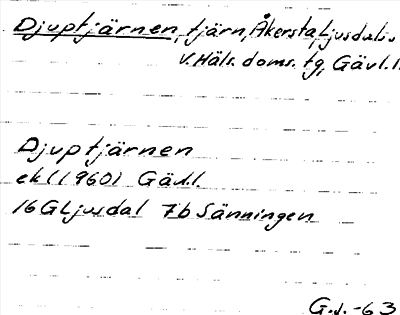 Djuptjärnen, tjärn, Åkersta, Ljusdals s
V. Häls. doms. tg, Gävl. l.
Djuptjärnen
ek (1960) Gävl. l.
16G Ljusdal 7b Sänningen
G. J. -63